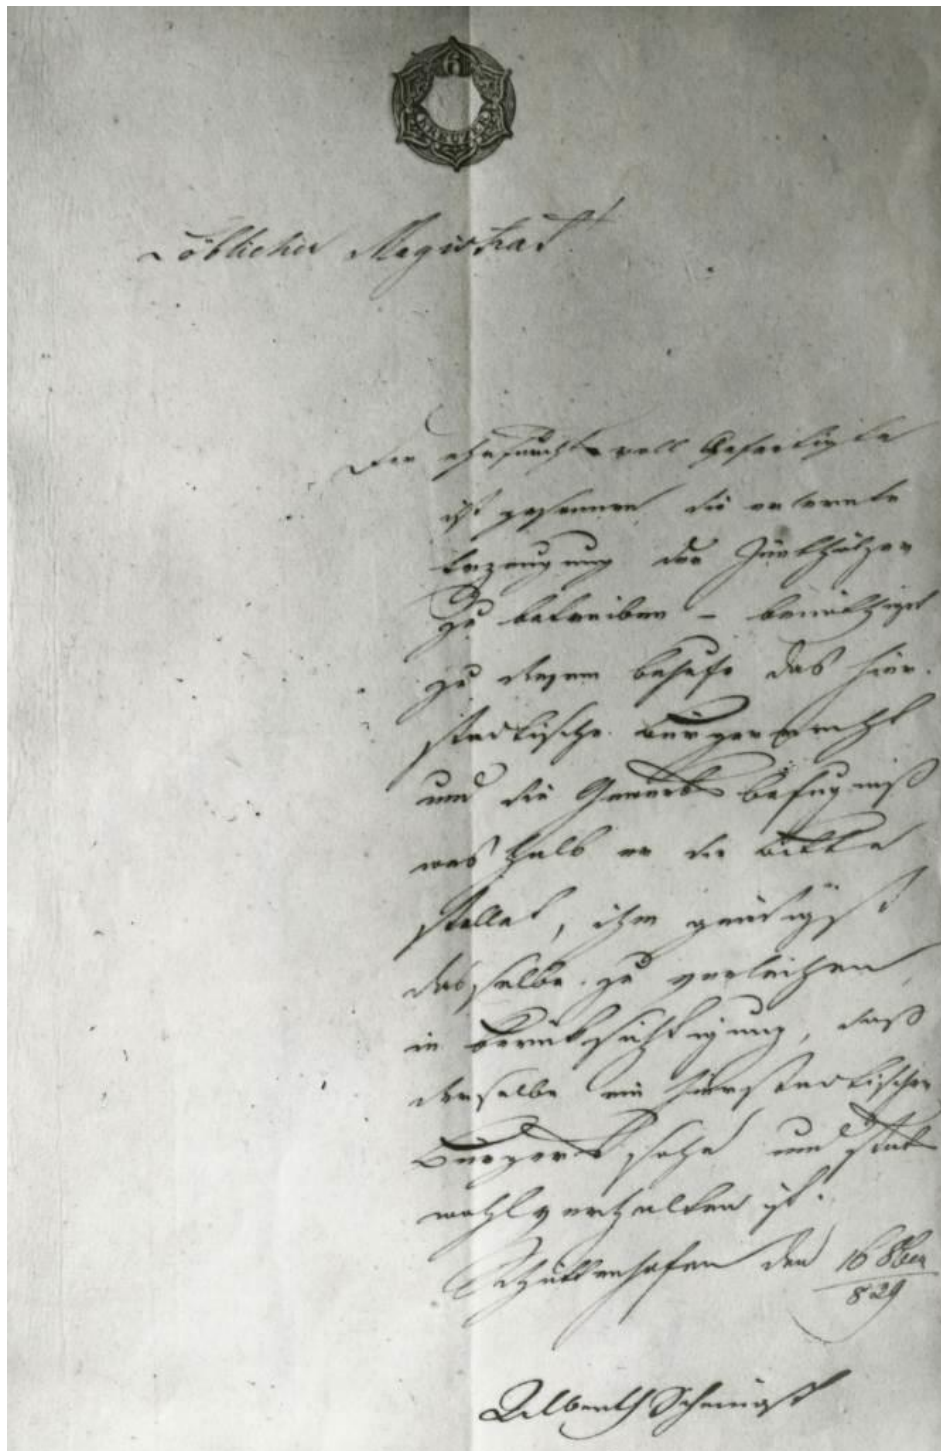 6
KREUZER
Löblicher Magistrat!
Der ehrfurchtsvoll Gefertigte
ist gesonnen die
Erzeugung der Zündhölzer
zu betreiben – benöthiget
zu diesem behufe das hier-
städtische Bürgerrecht
und die Gewerbs befugniß
weshalb er die Bitte
stellet, ihm gnädigst
dasselbe zu verleihen
in Berücksichtigung, daß
derselbe ein hierstädtischer
Bürgers sohn und stets
wohlverhalten ist.
Schüttenhofen den 16 8ber
829
Alberth Scheinost